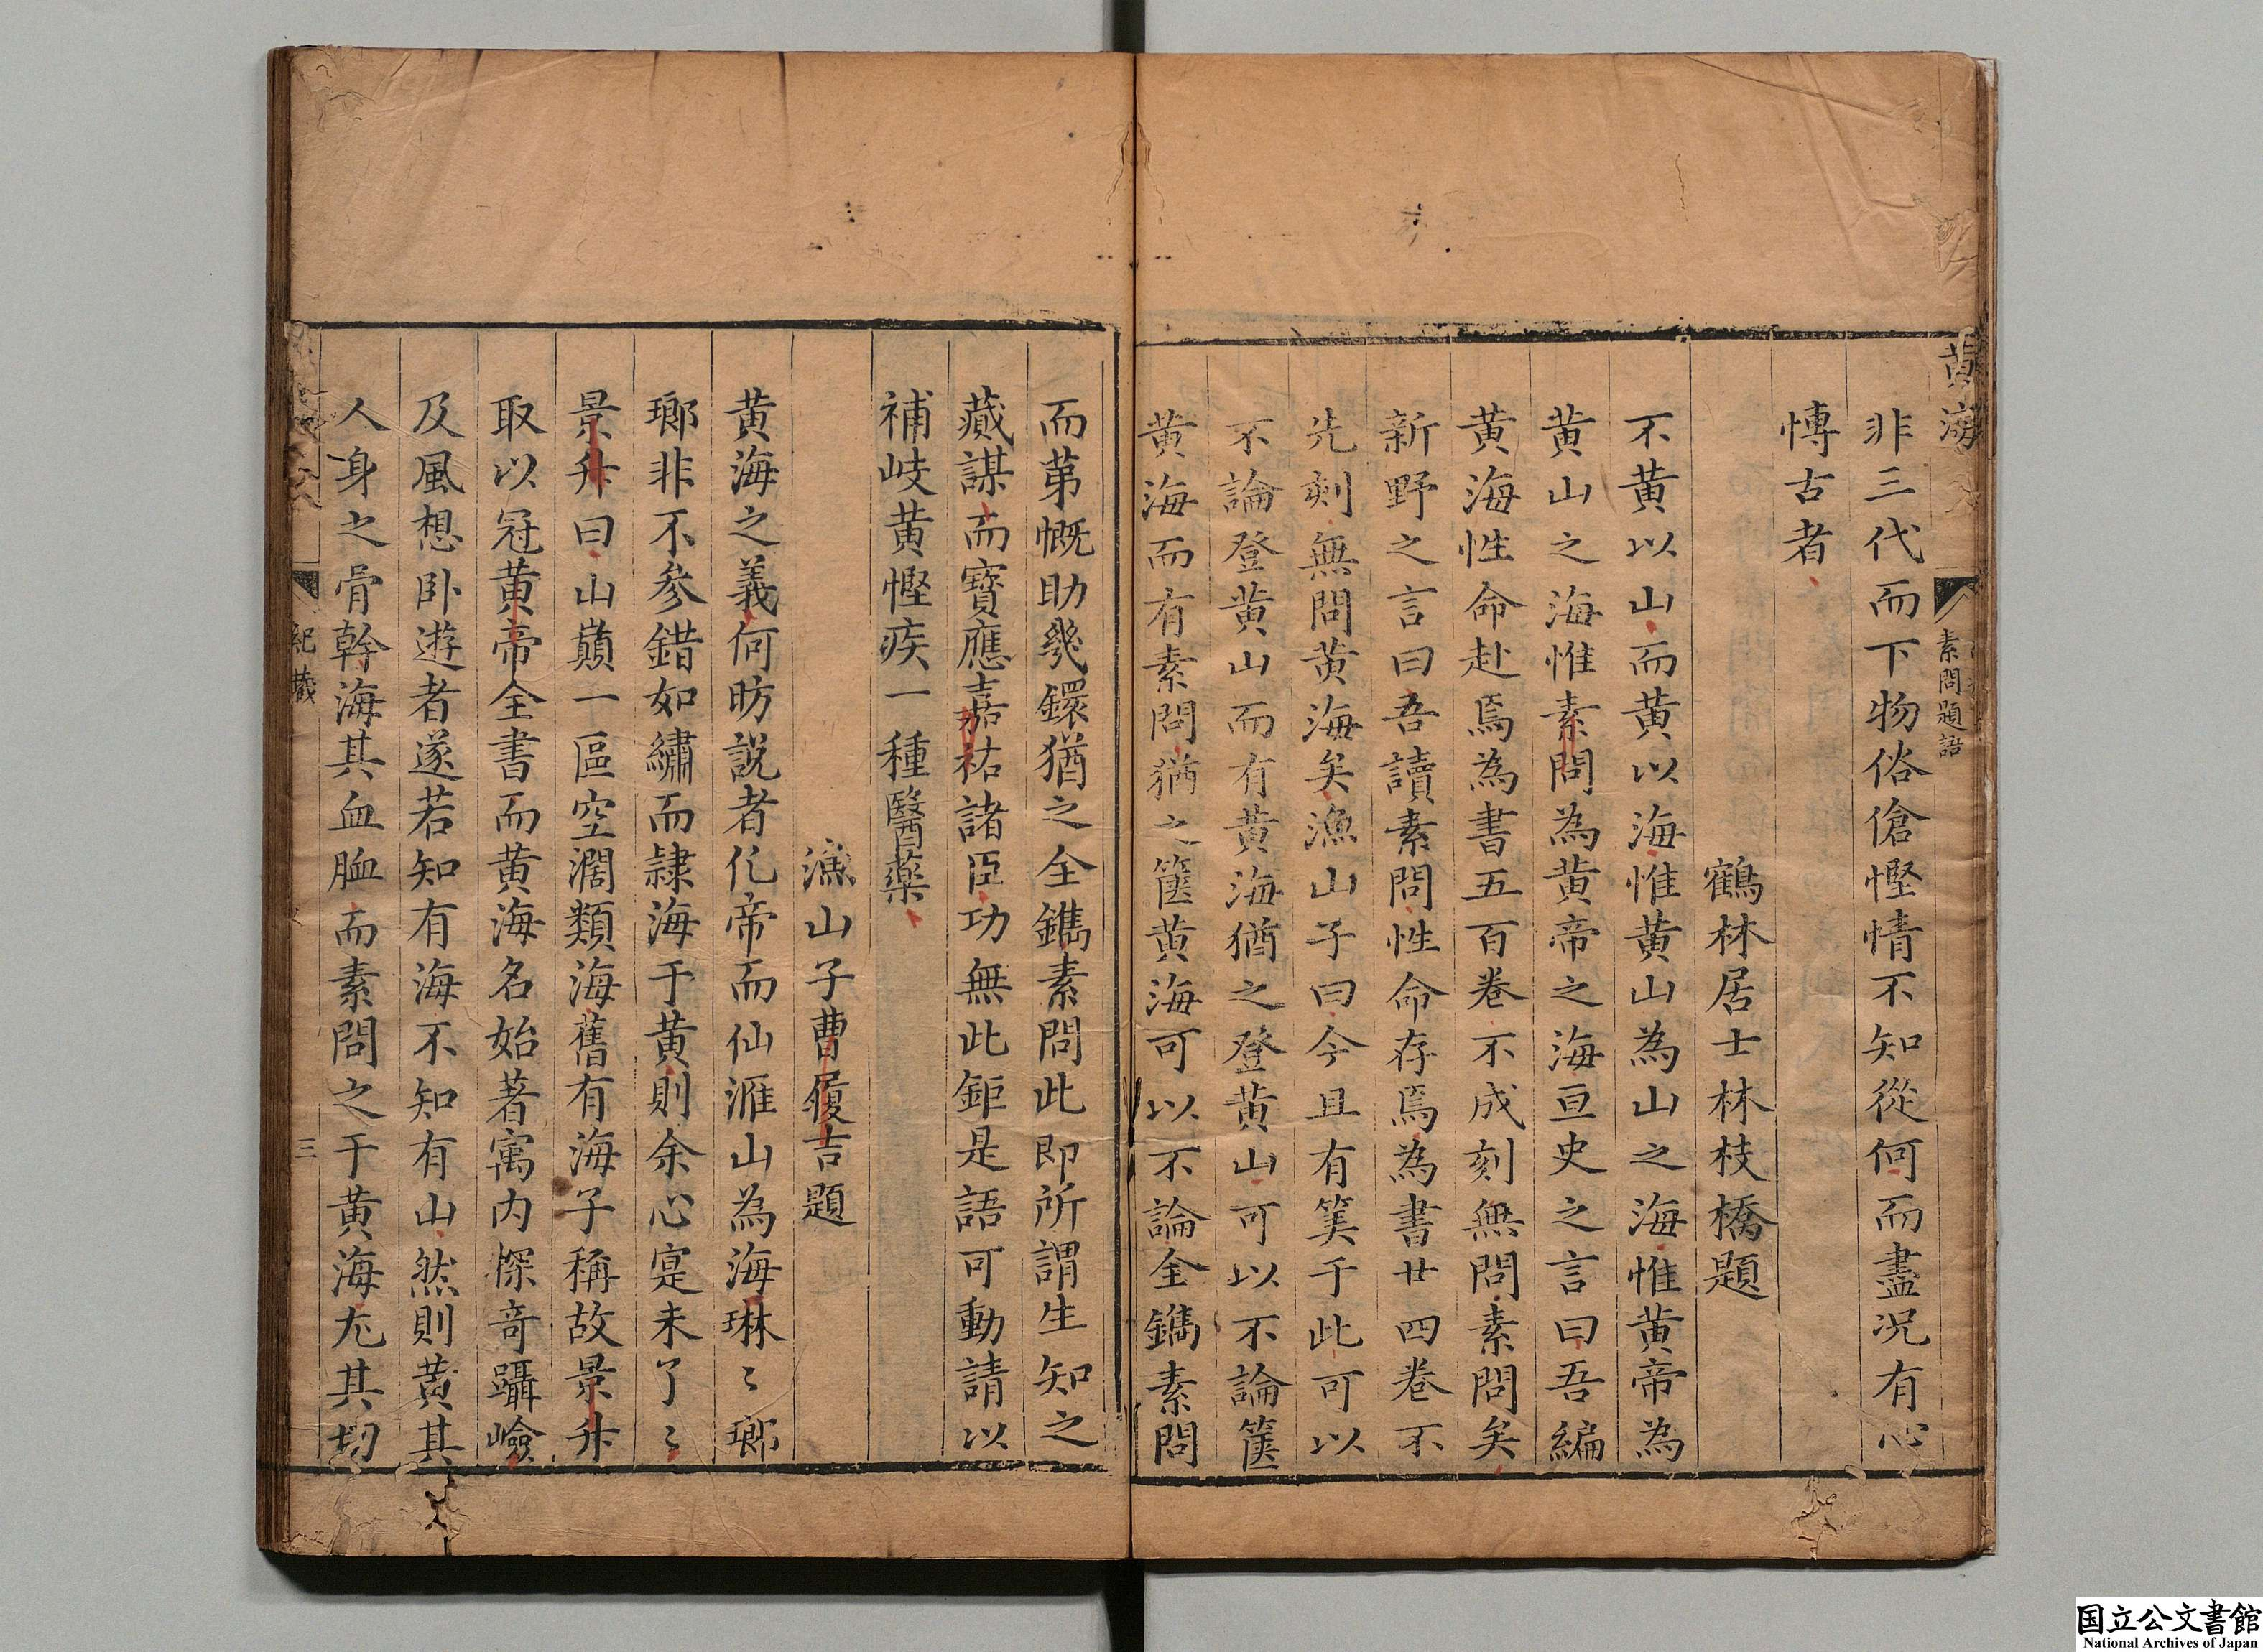 黃海
素問題語
非三代而下物俗傖慳情不知從何而盡况有心
慱古者
鶴林居士林枝橋題
不黃以山而黃以海惟黃山為山之海惟黃帝為
黃山之海惟素問為黃帝之海亘史之言曰吾編
黃海性命赴焉為書五百卷不成刻無問素問矣
新野之言曰吾讀素問性命存焉為書廿四卷不
先刻無問黃海矣漁山子曰今且有筭于此可以
不論登黃山而有黃海猶之登黃山可以不論篋
黃海而有素問猶之篋黃海可以不論全鐫素問
而苐慨助幾鐶猶之全鐫素問此即所謂生知之
藏謀而寶應嘉祐諸臣功無此鉅是語可動請以
補岐黃慳疾一種醫藥
漁山子曹履吉題
黃海之義何昉説者仡帝而仙滙山為海琳〻瑯
瑯非不參錯如繡而隷海于黃則余心寔未了〻
景升曰山巔一區空濶類海舊有海子稱故景升
取以冠黃帝全書而黃海名始著寓内探竒躡嶮
及風想卧遊者遂若知有海不知有山然則黃其
人身之骨幹海其血䘑而素問之于黃海尤其切
紀蕺
三
国立公文書館
National Archives of Japan